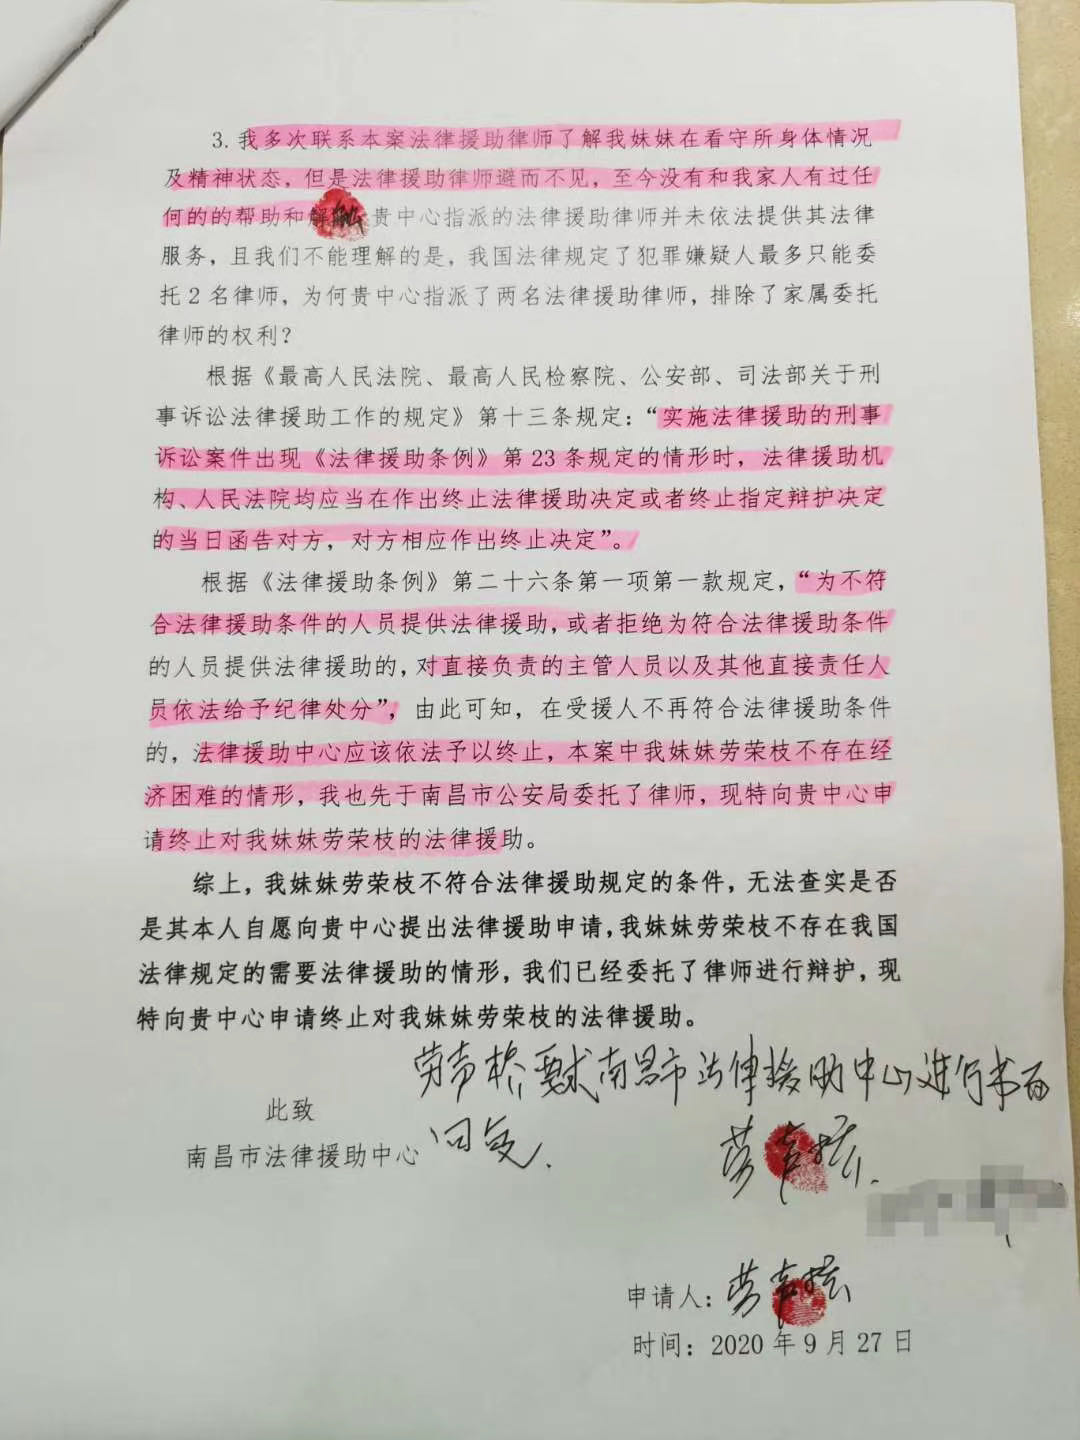 3. 我多次联系本案法律援助律师了解我妹妹在看守所身体情况
及精神状态，但是法律援助律师避而不见，至今没有和我家人有过任
何的的帮助和解 贵中心指派的法律援助律师并未依法提供其法律
服务，且我们不能理解的是，我国法律规定了犯罪嫌疑人最多只能委
托2名律师，为何贵中心指派了两名法律援助律师，排除了家属委托
律师的权利？
根据《最高人民法院、最高人民检察院、公安部、司法部关于刑
事诉讼法律援助工作的规定》第十三条规定：“实施法律援助的刑事
诉讼案件出现《法律援助条例》第23条规定的情形时，法律援助机
构、人民法院均应当在作出终止法律援助决定或者终止指定辩护决定
的当日函告对方，对方相应作出终止决定”。
根据《法律援助条例》第二十六条第一项第一款规定，“为不符
合法律援助条件的人员提供法律援助，或者拒绝为符合法律援助条件
的人员提供法律援助的，对直接负责的主管人员以及其他直接责任人
员依法给予纪律处分”，由此可知，在受援人不再符合法律援助条件
的，法律援助中心应该依法予以终止，本案中我妹妹劳荣枝不存在经
济困难的情形，我也先于南昌市公安局委托了律师，现特向贵中心申
请终止对我妹妹劳荣枝的法律援助。
综上，我妹妹劳荣枝不符合法律援助规定的条件，无法查实是否
是其本人自愿向贵中心提出法律援助申请，我妹妹劳荣枝不存在我国
法律规定的需要法律援助的情形，我们已经委托了律师进行辩护，现
特向贵中心申请终止对我妹妹劳荣枝的法律援助。
劳声桥要求南昌市法律援助中心进行书面
回复.
此致
南昌市法律援助中心
劳声桥.
申请人：劳声桥
时间：2020年9月27日